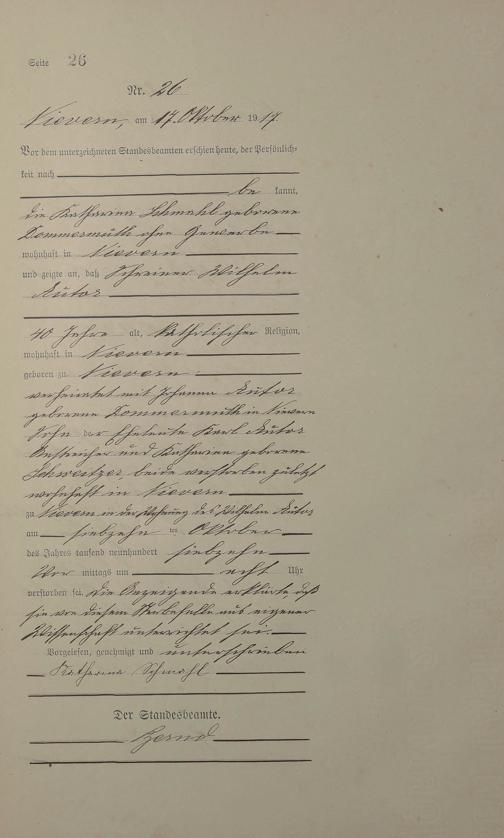 Seite 26
Nr. 26
Nievern, am 17. Oktober 1917.
Vor dem unterzeichneten Standesbeamten erschien heute, der Persönlich-
keit nach
be kannt,
die Katharina Schmahl geborene
Dommermuth ohne Gewerbe
wohnhaft in Nievern
und zeigte an, daß Schreiner Wilhelm
Autor
40 Jahre alt, katholischer Religion,
wohnhaft in Nievern
geboren zu Nievern
verheiratet mit Johanna Autor
geborene Dommermuth in Nievern
Sohn der Eheleute Karl Autor
und Katharina geborene
Schweitzer beide verstorben zuletzt
wohnhaft in Nievern
zu Nievern in der Wohnung des Wilhelm Autor
am siebzehn ten Oktober
des Jahres tausend neunhundert siebzehn
Vor mittags um acht Uhr
verstorben sei. Die Anzeigende erklärte, daß
sie von diesem Sterbefalle aus eigener
Wissenschaft unterrichtet sei.
Vorgelesen, genehmigt und unterschrieben
Katharina Schmahl
Der Standesbeamte.